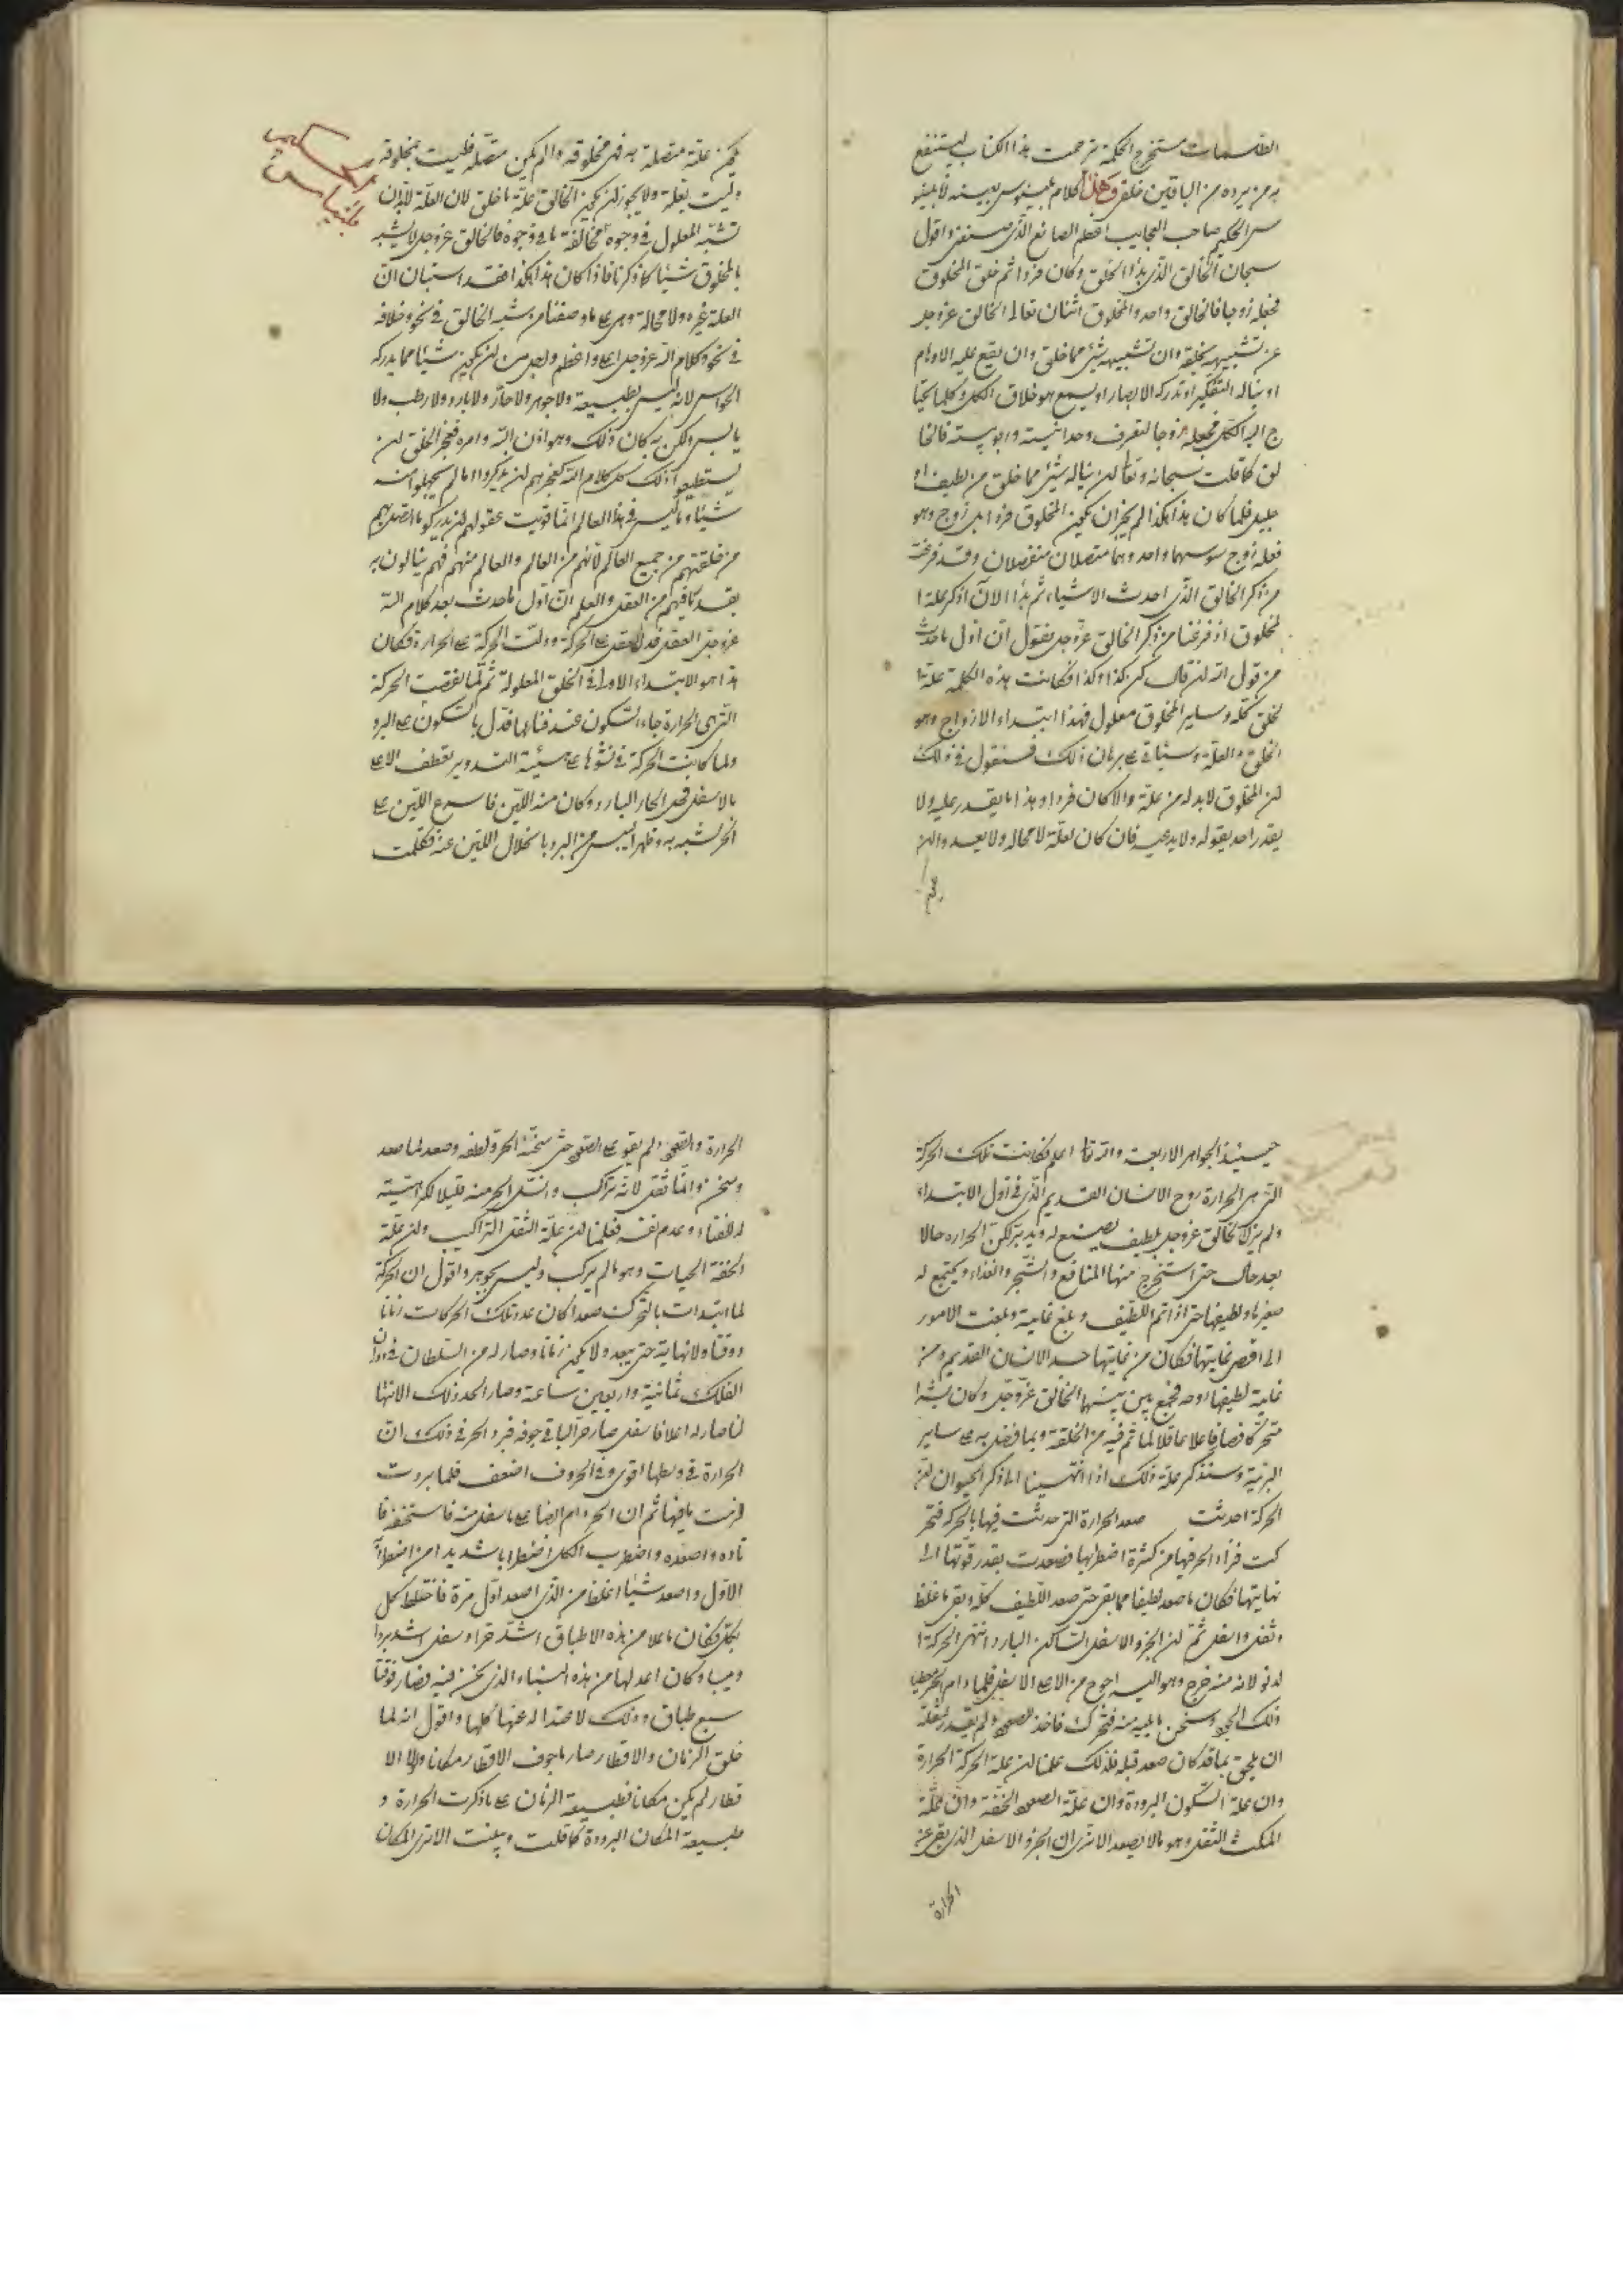 الطلسمات مستخرج الحكمة ترجمت هذا الكتاب لينتفع
به من يرده من الباقين خلقي وهذا كلام بلينوس بعينه لا بلينو
س الحكيم صاحب العجايب اعظم الصانع الذي صنعني واقول
سبحان الخالق الذي بدأ الخلق وكان فردا ثم خلق المخلوق
فجعله زوجا فالخالق واحد والمخلوق اثنان تعالى الخالق عز وجل
عن تشبيهه بخلقه وان تشبيهه شئ مما خلق وان يقع عليه الاوهام
او يناله التفكير او تدركه الابصار او يسمع هو خلاف الكل وكلما يحتا
ج اليه الكل فجعله زوجا لتعرف وحدانيته وربوبيته فالخا
لق كما قلت سبحانه وتعالى لن يناله شئ مما خلق من لطيف او
جليل فلما كان هذا هكذا لم يجز ان يكون المخلوق فردا بل زوج وهو
فعله زوج سوسهما واحد وهما متصلان منفصلان وقد فرغت
من ذكر الخالق الذي احدث الاشياء ثم بدأ الآن اذكر علة ا
لمخلوق اذ فرغنا من ذكر الخالق عز وجل فنقول ان اول ما حدث
من قول الله لن قال كن كذا وكذا فكانت هذه الكلمة علة ا
لخلق كله وساير المخلوق معلول فهذا ابتداء الازواج وهو
الخلق والعلة وسياتي على برهان ذلك فسنقول في ذلك
لن المخلوق لا بد له من علة والا كان فردا وهذا ما يقدر عليه ولا
يقدر احد يقوله ولا يدعيه فان كان لعلة لا محالة ولا يعد والن
يكن علة متصلة به فهي مخلوقة وان لم يكون متصلة فليست بمخلوقة
وليست بعلة ولا يجوز لن يكون الخالق علة ما خلق لان العلة لا بد ان
تشبه المعلول في وجوه مخالفة ما في وجوه فالخالق عز وجل لا يشبه
بالمخلوق شيئا كما ذكرنا فاذا كان هذا هكذا فقد استبان ان
العلة غيره ولا محالة وهي على ما وصفنا من شبه الخالق في نحو وخلافه
في نحو وكلام الله عز وجل اعلى واعظم واجل من لن يكون شيئا مما يدركه
الحواس لانه ليس بطبيعة ولا جوهر ولا حار ولا بارد ولا رطب ولا
يابس ولكن به كان ذلك وهو اذن الله وامره فعجز الخلق لن
يستطيعوا ذلك كل كلام الله كعجزهم لن يذكروا ما لم يجهلوا منه
شيئا وما ليس في هذا العالم انما قويت عقولهم لن يدركوا ما اتصل بهم
من خلقتهم من جميع العالم لانهم من العالم والعالم منهم فهم ينالون به
بقدر ما فيهم من العقل والعلم ان اول ما حدث بعد كلام الله
عز وجل العقل فدل العقل على الحركة ودلت الحركة على الحرارة فكان
هذا هو الابتداء الاول في الخلق المعلولة ثم لما نقصت الحركة
التي هي الحرارة جاء السكون عند فنائها فدل بالسكون على البرد
ولما كانت الحركة في نشوها على هيئة التدوير بعطف الاعلى
بالاسفل فحل الحار البارد وكان منه اللين فاسرع اللين على
الحر لشبهه به وظهر اليبس من البرد بانحلال اللين عنه فكملت
حينئذ الجواهر الاربعة والله تعالى اعلم فكانت تلك الحركة
التي هي الحرارة روح الانسان القديم الذي في اول الابتداء
ولم يزل الخالق عز وجل بلطيف يصنع له ويدبر تكن الحرارة حالا
بعد حال حتى استخرج منها المنافع والشجر والغذاء ويجتمع له
صغيرها ولطيفها حتى اذا تم اللطيف وبلغ غايته وبلغت الامور
الى اقصى نهايتها فكان من نهايتها جسد الانسان القديم ومن
غاية لطيفها روحه فجمع بين بينهما الخالق عز وجل وكان بشرا
متحركا فصار فاعلا عاقلا لما تم فيه من الخلقة وبما فضل به على ساير
البرية وسنذكر علة ذلك اذا انتهينا الى ذكر الحيوان لن
الحركة احدثت صعد الحرارة التي حدثت فيها بالحركة فتحر
كت فزاد الحر فيها من كثرة اضطرابها فصعدت بقدر قوتها الى
نهايتها فكان ما صعد لطيفا مما بقي حتى صعد اللطيف كله وبقي ما غلظ
وثقل واسفل ثم لن الجزو الاسفل الساكن البارد انتهى الحركة ا
لدنو لانه منه خرج وهو اليه احوج من الاعلى الاسفل فلما دام الحر
ذلك الجزو وسخن ما يليه منه فتحرك فاخذ الصعود ولم يقدر لثقله
ان يلحق بما قد كان صعد قبله فلذلك علمنا لن علة الحركة الحرارة
وان علة السكون البرودة وان علة الصعود الخفة وان علة
المكث الثقل وهو ما لا يصعد الا ترى ان الجزو الاسفل الذي بقي عن
الحرارة
الحرارة والصعود لم يقو على الصعود حتى سخنه الحر ولطفه وصعد لما صعد
وسخن وانما ثقل لانه تراكب وانسل الحر منه قليلا لكراهيته
له للفناء وعدم نفسه فعلمنا لن علة الثقل التراكيب ولن علة
الخفة الحيات وهو ما لم يركب وليس بجوهر واقول ان الحركة
لما ابتدات بالتحرك صعدا كان عدد تلك الحركات زمانا
ووقتا ولا نهاية حتى يبعد ولا يكون زمانا وصار له من السلطان في دوران
الفلك ثمانية واربعين ساعة وصار الحد ذلك الانتها
لما صار له اعلا فاسفل صار حر الباقي جوفه فبرد الحر في ذلك ان
الحرارة في وسطها اقوى وفي الحروف اضعف فلما بردت
لزمت ما فيها ثم ان الحر دام ايضا على ما سفل منه فاستخفه فا
ثاره واصعده واضطرب الكل اضطرابا شديدا من اضطرا
الاول واصعد شيئا اغلظ من الذي اصعد اول مرة فاختلط كل
بكل فكان ما علا من هذه الاطباق اشد حرا وما سفل اشد بردا
ويبسا وكان اعدلها من هذه السماء الذي نحن فيه فصار فوقنا
سبع طباق وذلك لا عتداله عنها كلها واقول انه لما
خلق الزمان والاقطار صار ما جوف الاقطار مكانا ولولا الا
قطار لم يكن مكانا فطبيعة الزمان على ما ذكرت الحرارة و
طبيعة المكان البرودة كما قلت وبينت الا ترى المكان